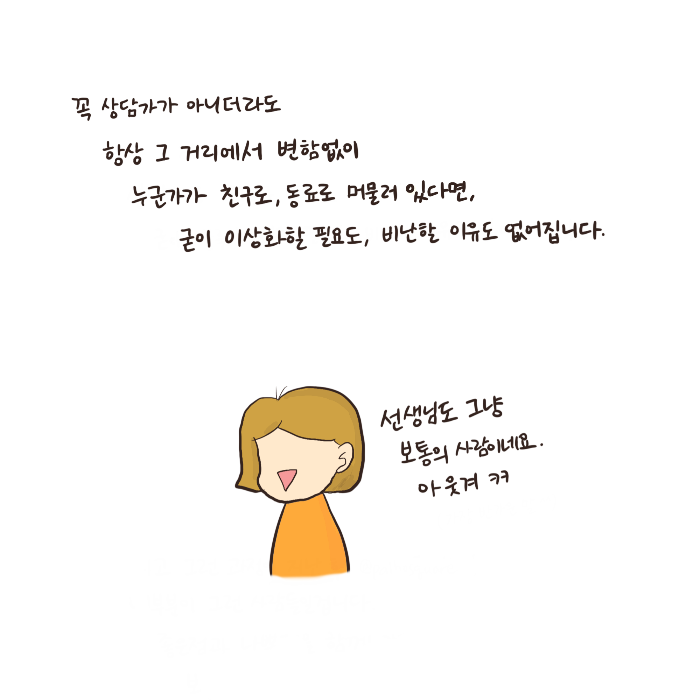 꼭 상담가가 아니더라도
항상 그 거리에서 변함없이
누군가가 친구로, 동료로 머물러 있다면,
굳이 이상화할 필요도, 비난할 이유도 없어집니다.
선생님도 그냥
보통의 사람이네요.
아 웃겨 ㅋㅋ